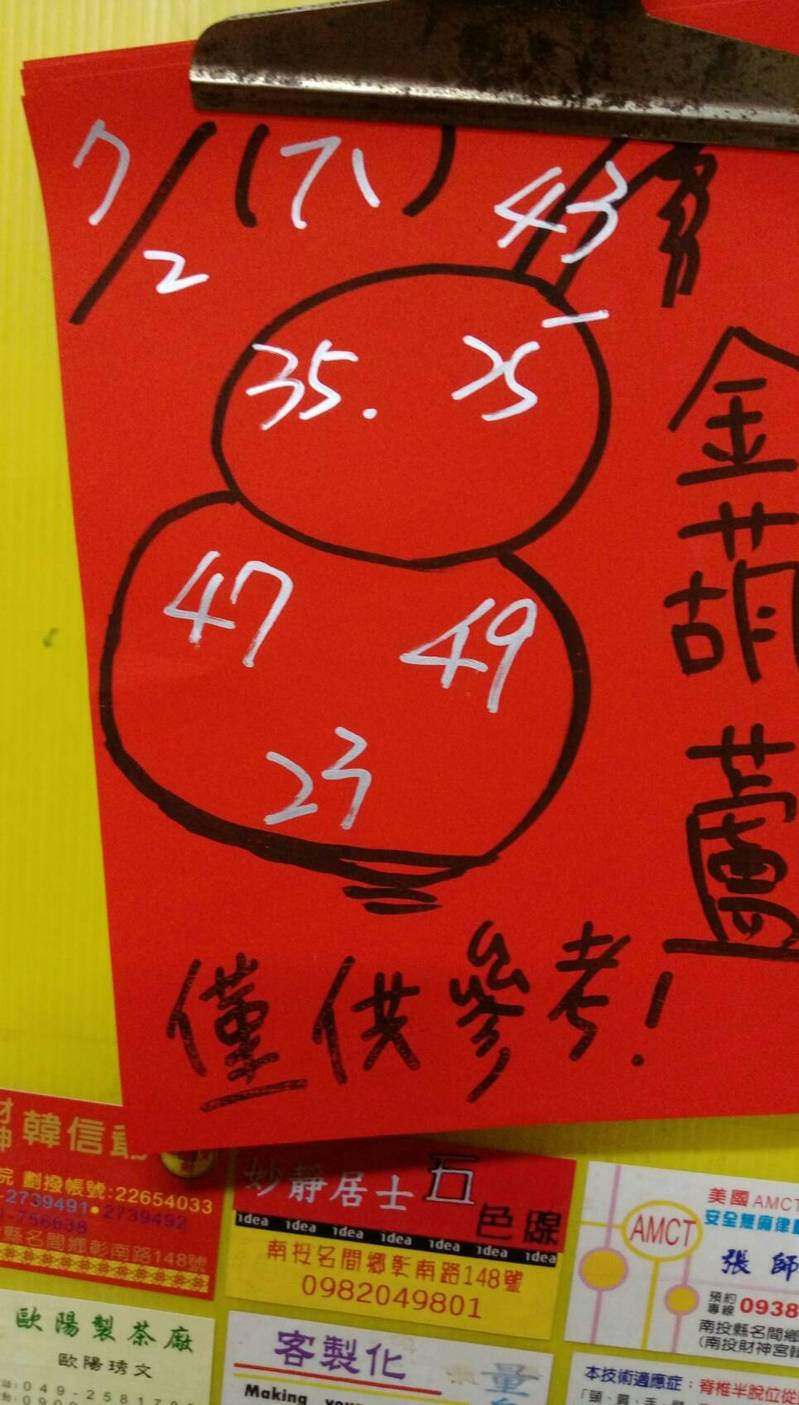 7/2 (六)
43
35. 25
47 49
23
金葫蘆
僅供參考!
財神 韓信爺
劃撥帳號:22654033
-2739491•2739492
-756638
縣名間鄉彰南路148號
妙靜居士 五色線
idea idea idea idea idea idea idea
南投名間鄉彰南路148號
0982049801
美國AMCT
AMCT
張師
預約專線 0938
南投縣名間鄉
(南投財神宮
歐陽製茶廠
歐陽琇文
客製化
量
Making your
本技術適應症:脊椎半脫位從